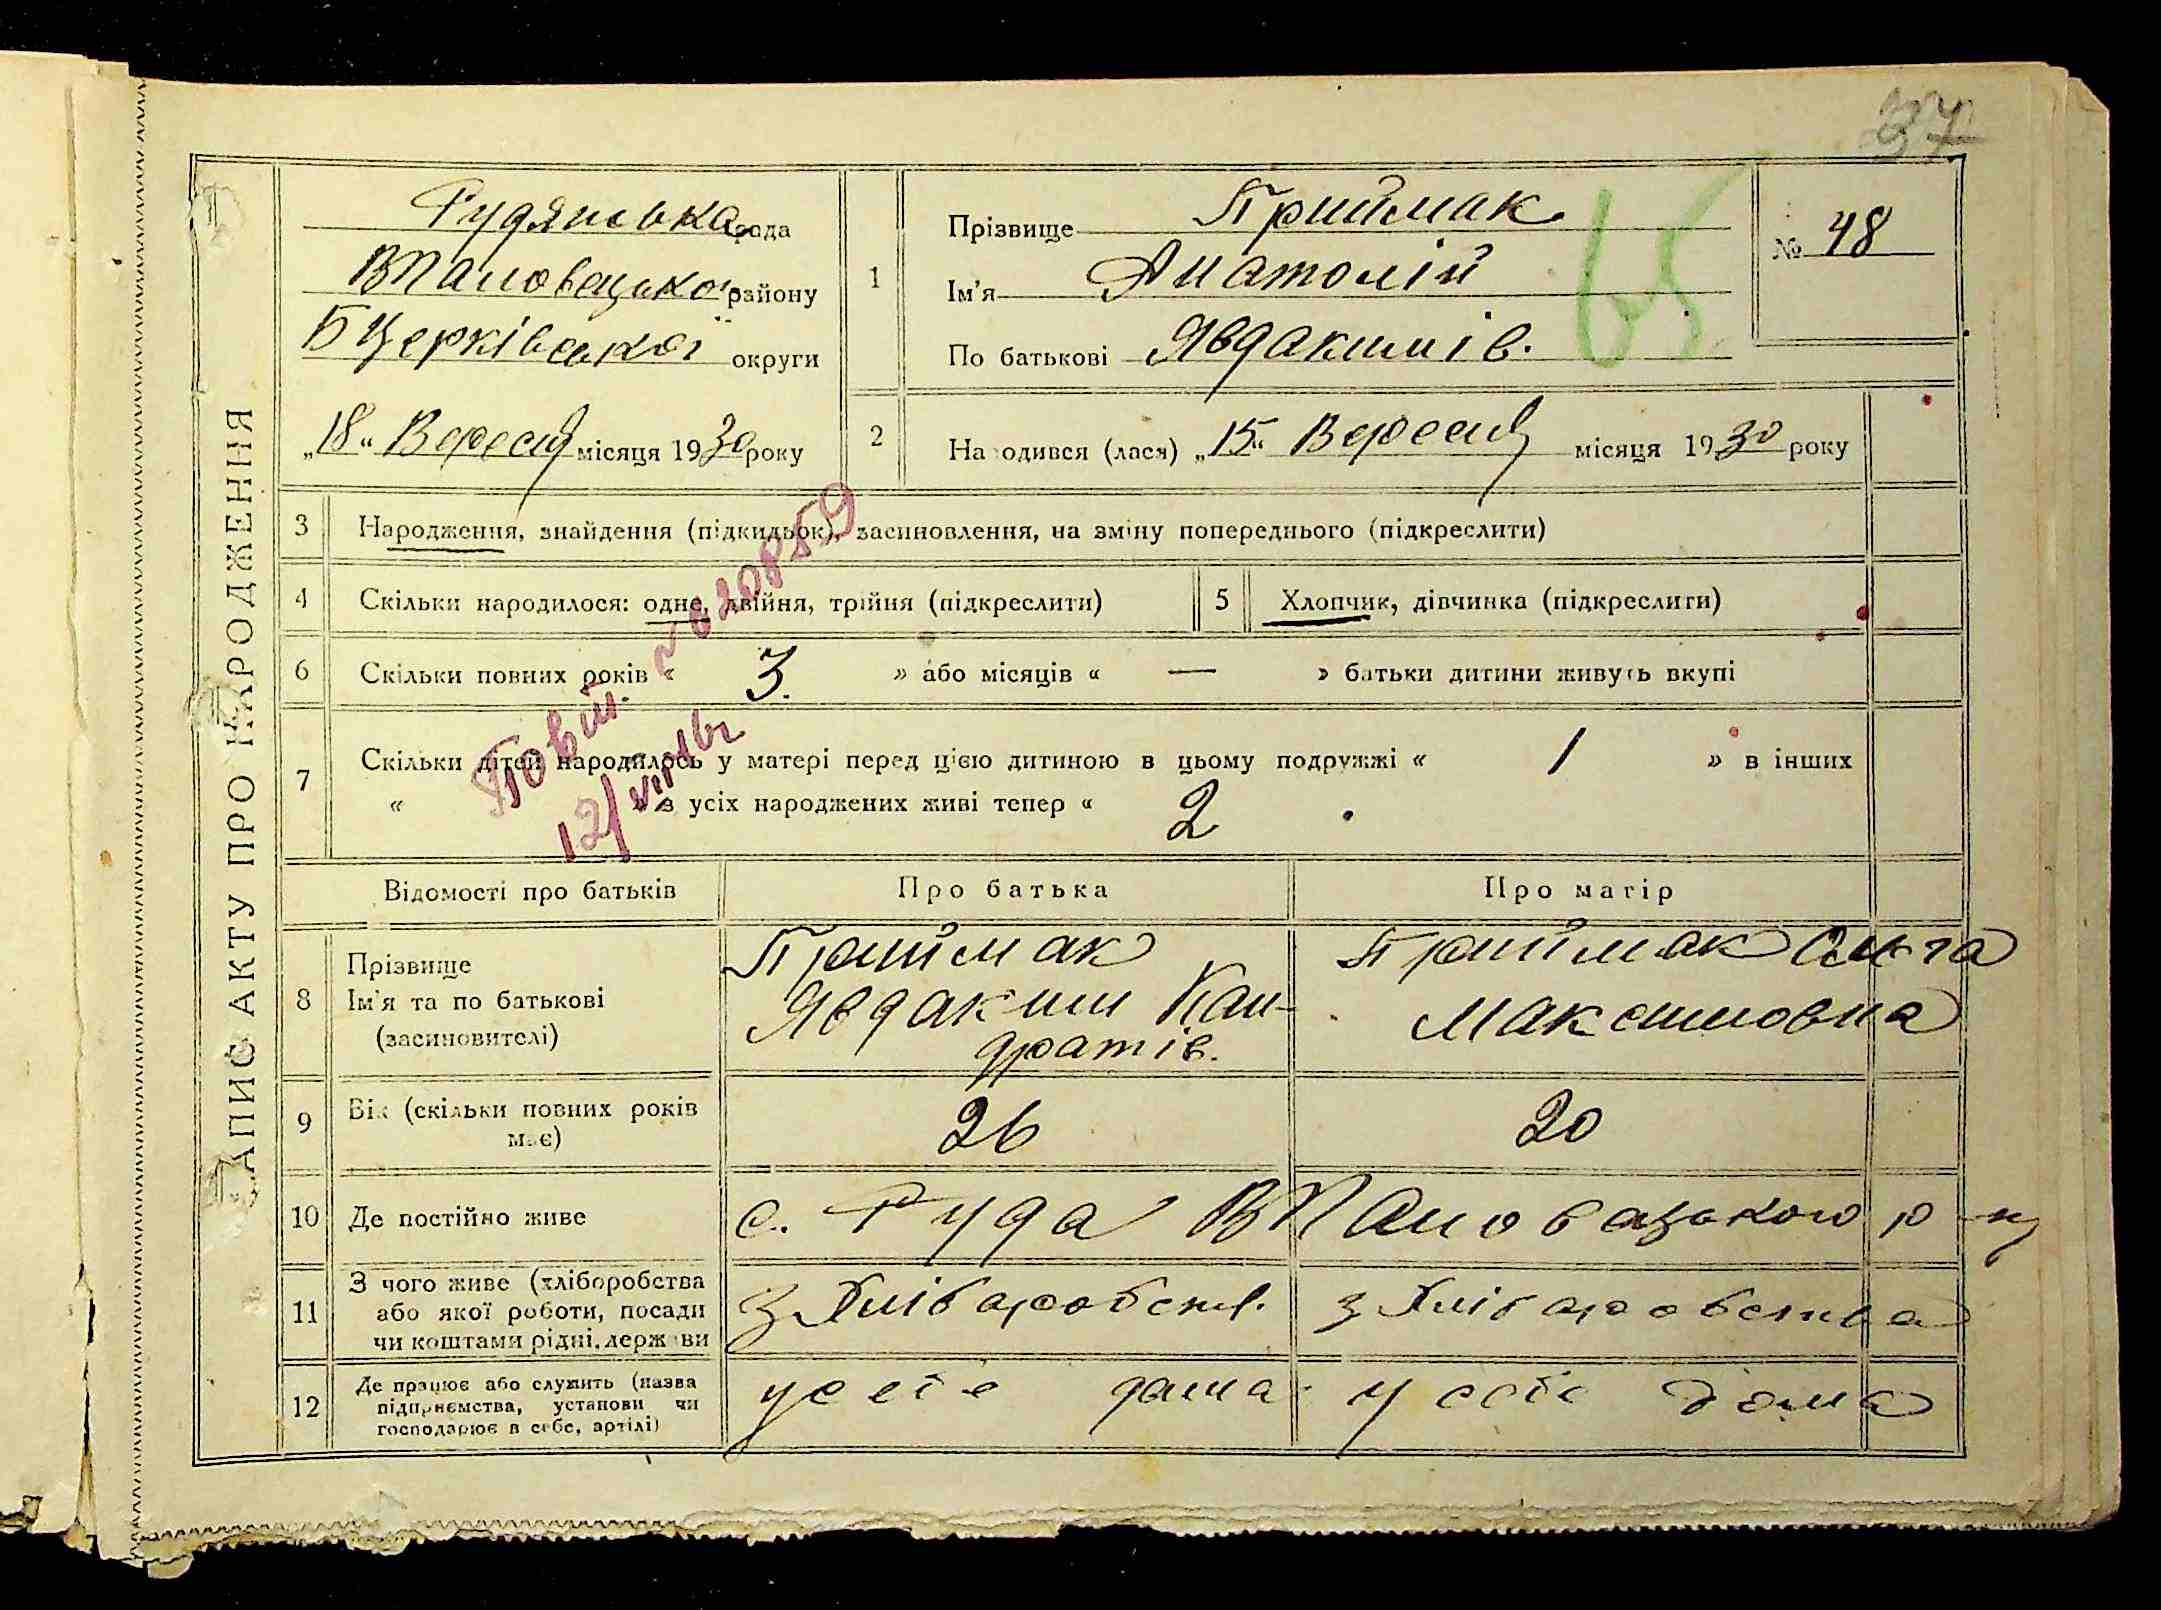 37
ЗАПИС АКТУ ПРО НАРОДЖЕННЯ
Рудянська рада
ВПаловецької району
БЦерківської округи
„18“ Вересня місяця 1930 року
1
Прізвище Приймак
Ім'я Анатолій
По батькові Явдакимів.
65
№ 48
2
Народився (лася) „15“ Вересня місяця 1930 року
3 Народження, знайдення (підкидьок), засиновлення, на зміну попереднього (підкреслити)
4 Скільки народилося: одне, двійня, трійня (підкреслити)
5 Хлопчик, дівчинка (підкреслити)
6 Скільки повних років « 3. » або місяців « — » батьки дитини живуть вкупі
7 Скільки дітей народилось у матері перед цією дитиною в цьому подружжі « 1 » в інших
« » з усіх народжених живі тепер « 2 .
Відомості про батьків Про батька Про матір
8 Прізвище
Ім'я та по батькові
(засиновителі)
Приймак
Явдаким Кан-
дратів.
Приймак Ольга
Максимовна
9 Вік (скільки повних років
має)
26
20
10 Де постійно живе
с. Руда ВПаловецького р-ну
11 З чого живе (хліборобства
або якої роботи, посади
чи коштами рідні, держави
з Хлібаробств.
з Хлібаробства
12 Де працює або служить (назва
підприємства, установи чи
господарює в себе, артілі)
у себе дама
у себе дома